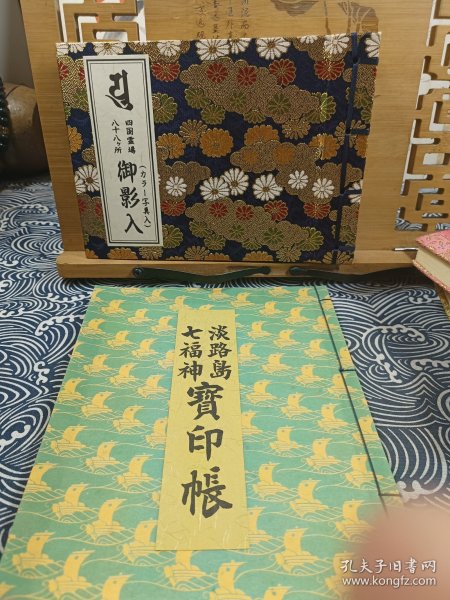 四国霊場
八十八ヶ所
御影入
(カラー写真入)
淡路島
七福神
寳印帳
孔夫子旧书网
www.kongfz.com